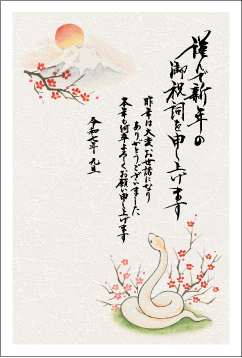 謹んで新年の
御祝詞を申し上げます
昨年は大変お世話になり
ありがとうございました
本年も何卒よろしくお願い申し上げます
令和七年 元旦